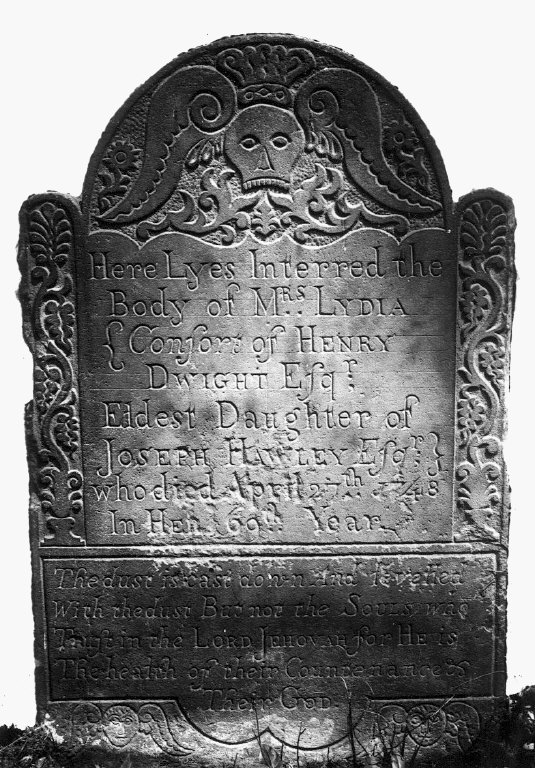 Here Lyes Interred the
Body of Mʳˢ. LYDIA
{ Conſort of HENRY
DWIGHT Eſqʳ.
Eldest Daughter of
JOSEPH HAWLEY Eſqʳ. }
who died April 27ᵗʰ 1748
In Her 69ᵗʰ Year
The dust is cast down And levelled
With the dust But not the SOULS who
Trust in the LORD JEHOVAH for HE is
The health of their Countenance &
Their GOD